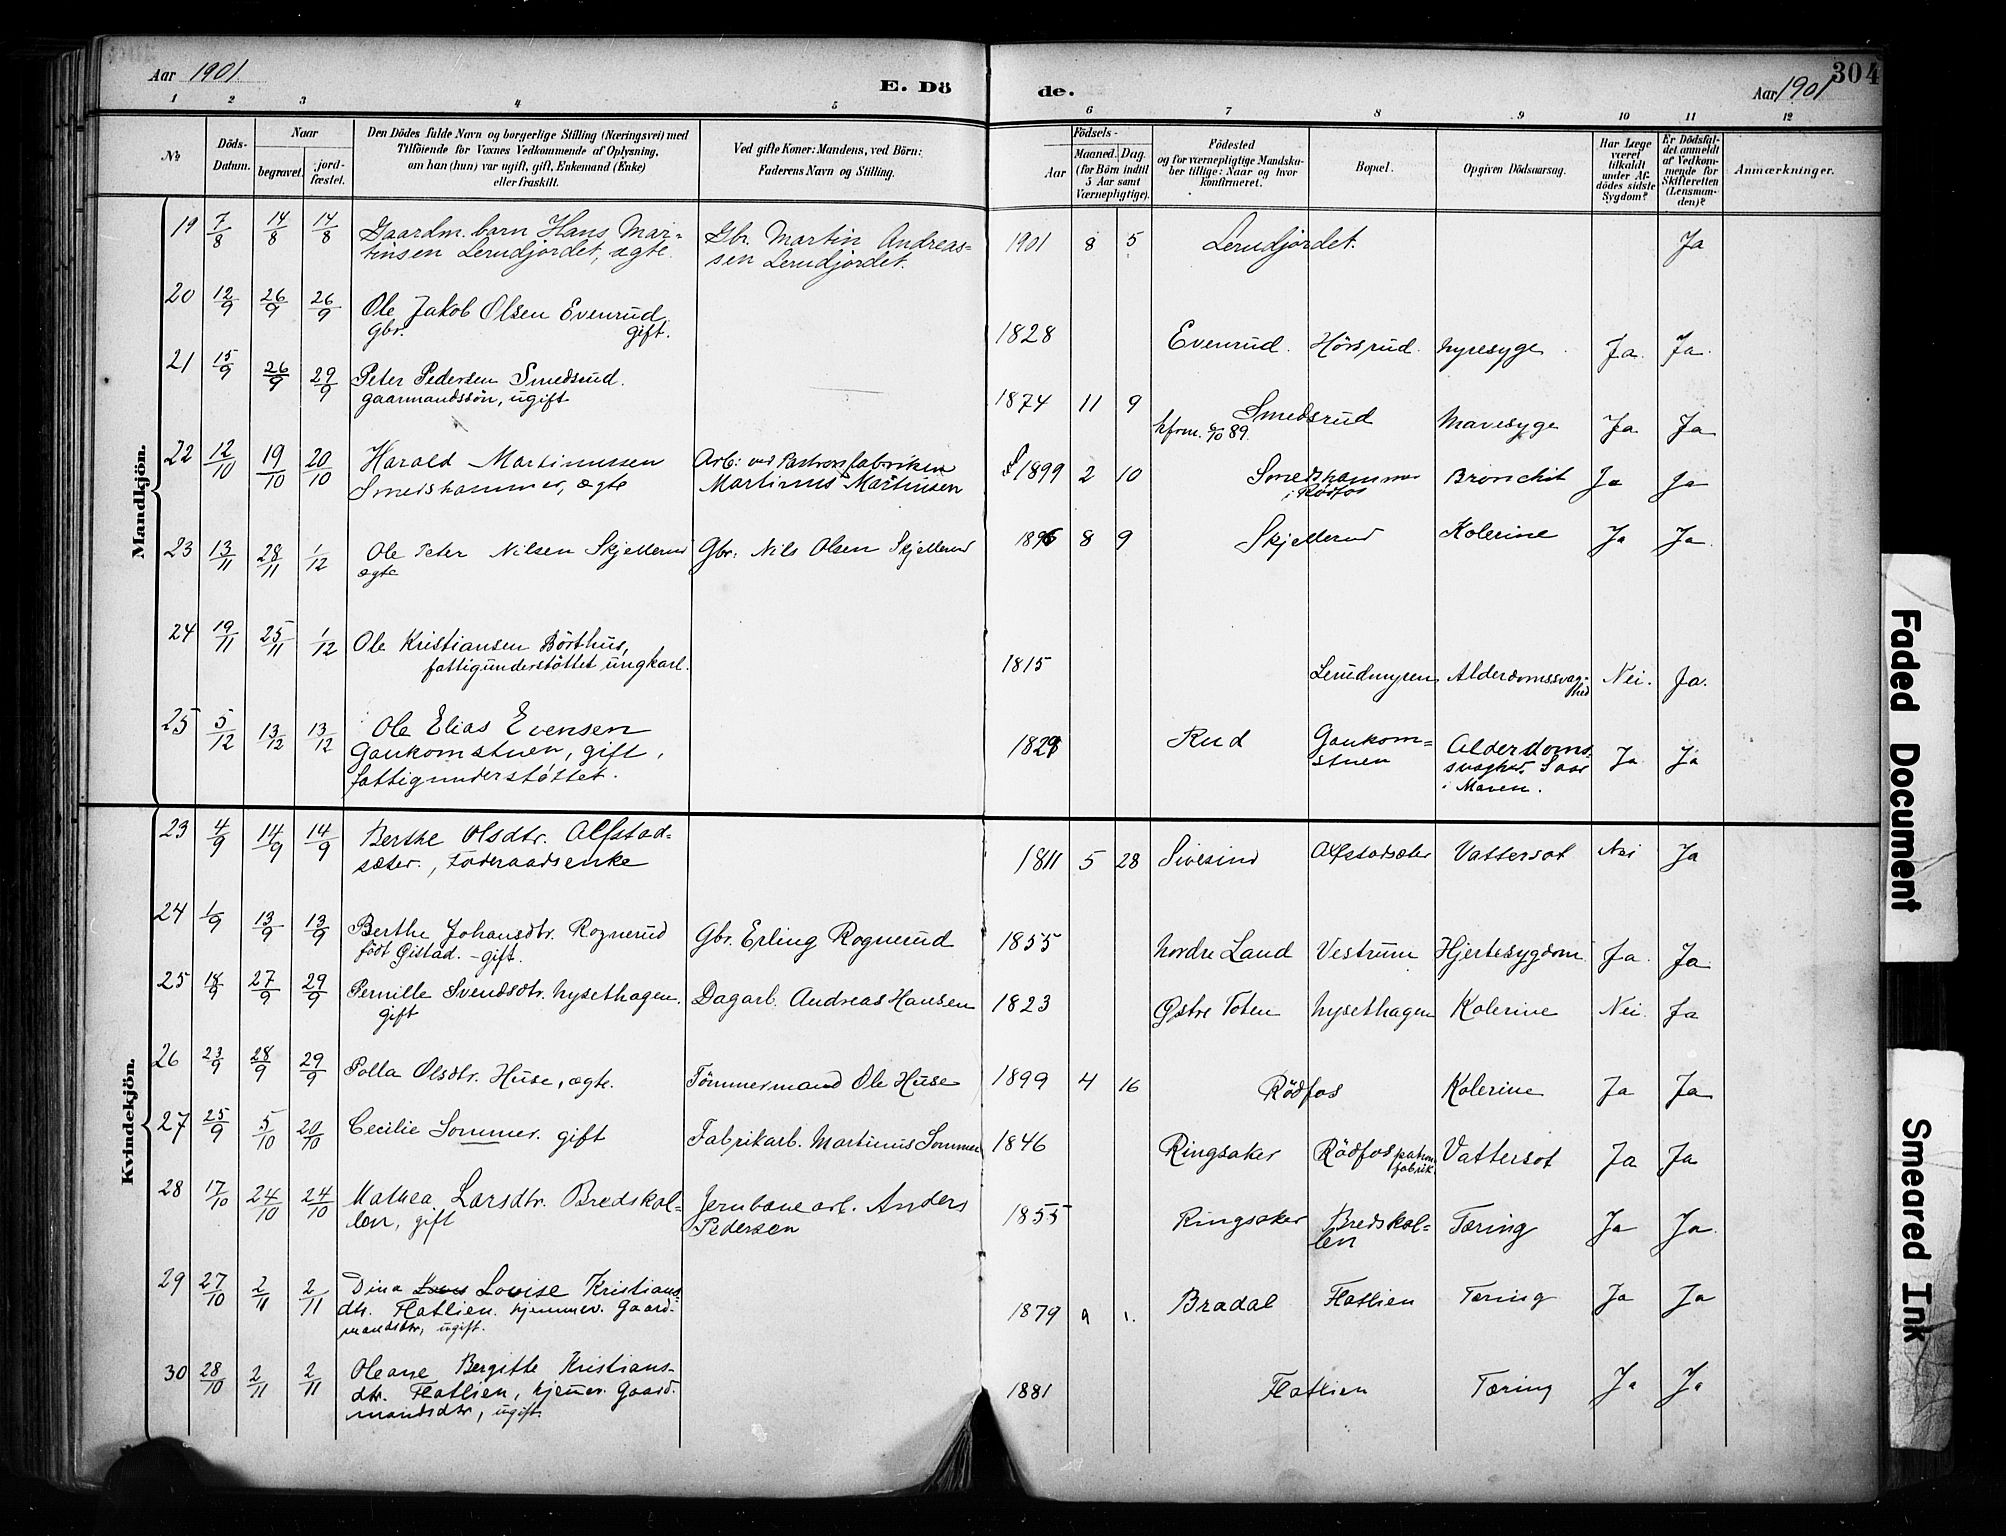 Aar 1901.
E. Dö de.
Aar 1901
304
1 2 3 4 5 6 7 8 9 10 11 12
No
Döds-Datum.
Naar
begravet.
jord-fæstet.
Den Dödes fulde Navn og borgerlige Stilling (Næringsvei) med
Tilföiende for Voxnes Vedkommende af Oplysning,
om han (hun) var ugift, gift, Enkemand (Enke)
eller fraskilt.
Ved gifte Koner: Mandens, ved Börn:
Faderens Navn og Stilling.
Födsels-
Aar
Maaned. Dag.
(for Börn indtil
5 Aar samt
Værnepligtige).
Födested
og for værnepligtige Mandska-
ber tillige: Naar og hvor
konfirmeret.
Bopæl.
Opgiven Dödsaarsag.
Har Læge
været
tilkaldt
under Af-
dödes sidste
Sygdom?
Er Dödsfal-
det anmeldt
af Vedkom-
mende for
Skifteretten
(Lensman-
den)?
Anmærkninger.
Mandkjön.
19 7/8 14/8 14/8 Gaardm. barn Hans Mar-
tinsen Lerudjordet, ægte.
Gbr. Martin Andreas-
sen Lerudjordet.
1901 8 5 Lerudjordet. Ja
20 12/9 26/9 26/9 Ole Jakob Olsen Evenrud,
gbr. gift.
1828 Evenrud. Hörsrud. Nyresyge Ja. Ja.
21 15/9 26/9 29/9 Peter Pedersen Smedsrud.
gaarmandssön, ugift
1874 11 9 Smedsrud
kfrm. 6/10 89.
Mavesyge Ja Ja
22 12/10 19/10 20/10 Harald Martinussen
Smedshammer, ægte
Arb: ved Patronfabriken
Martinus Martinsen
1899 2 10 Smedshammer
i Rödfos
Bronchit Ja Ja
23 13/11 28/11 1/12 Ole Peter Nilsen Skjellerud
ægte
Gbr: Nils Olsen Skjellerud
8 9 Skjellerud Kolerine Ja Ja.
24 19/11 25/11 1/12 Ole Kristiansen Börthus,
fattigunderstöttet ungkarl.
1815 Lerudmyren Alderdomssvag-
hed
Nei. Ja.
25 5/12 13/12 13/12 Ole Elias Evensen
Gaukomstuen, gift,
fattigunderstöttet.
Rud Gaukom-
stuen
Alderdoms-
svaghed. Saar
i Maven.
Ja Ja
Kvindekjön.
23 4/9 14/9 14/9 Berthe Olsdtr. Alfstad-
sæter., Föderaadsenke
1811 5 28 Sivesind Alfstadsæter Vattersot Nei Ja
24 1/9 13/9 13/9 Berthe Johansdtr. Rognerud
födt Gistad. - gift.
Gbr. Erling Rognerud
1855 Nordre Land Vestrum Hjertesygdom Ja. Ja.
25 18/9 27/9 29/9 Pernille Svendsdtr. Nysethagen.
gift
Dagarb. Andreas Hansen
1823 Östre Toten Nysethagen Kolerine Nei. Ja
26 23/9 28/9 29/9 Polla Olsdtr. Huse, ægte. Tömmermand Ole Huse
1899 4 16 Rödfos Kolerine Ja Ja
27 25/9 5/10 20/10 Cecilie Sommer. gift Fabrikarb. Martinus Sommer
1846 Ringsaker Rödfos patron
fabrik
Vattersot Ja Ja
28 17/10 24/10 24/10 Mathea Larsdtr. Bredskal-
len, gift
Jernbanearb. Anders
Pedersen
1855 Ringsaker Bredskal-
len
Tæring Ja Ja.
29 27/10 2/11 2/11 Dina Louise Kristians-
dtr. Flatlien. hjemmev. Gaard-
mandsdtr, ugift.
1879 9 1. Bradal Flatlien Tæring Ja Ja
30 28/10 2/11 2/11 Oleane Bergitte Kristians-
dtr. Flatlien, hjemmev. Gaard-
mandsdtr, ugift.
1881 Flatlien Tæring Ja Ja
Faded Document
Smeared Ink